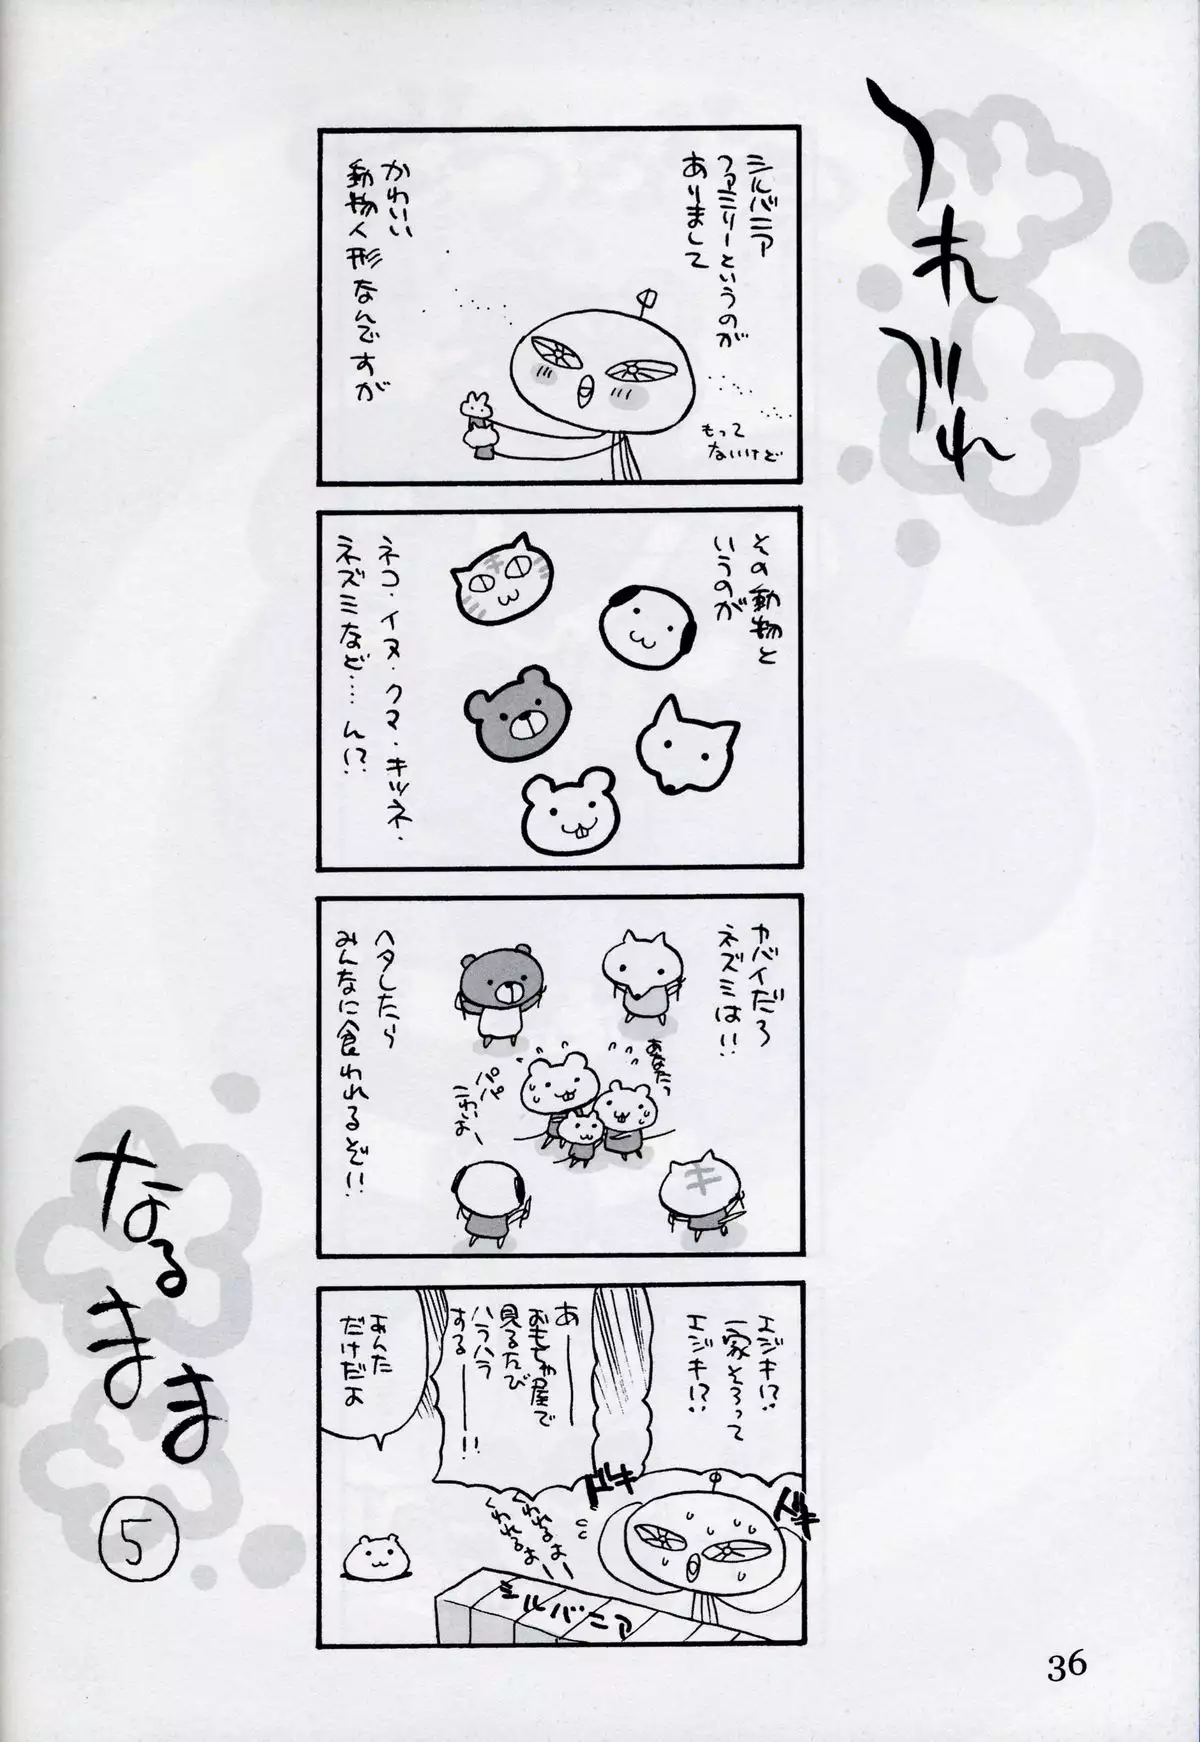 つれづれ
なるまま
⑤
シルバニア
ファミリーというのが
ありまして
もって
ないけど
かわいい
動物人形なんですが
その動物と
いうのが
ネコ・イヌ・クマ・キツネ・
ネズミなど…ん!?
ヤバイだろ
ネズミは!!
あなたっ
パパ
こわいよー
ヘタしたら
みんなに食われるぞ!!
エジキ!?
一家そろって
エジキ!?
あーー
おもちゃ屋で
見るたび
ハラハラ
するーー!!
ドキ
ドキ
くわれるよー
くわれるよー
シルバニア
あんた
だけだよ
36